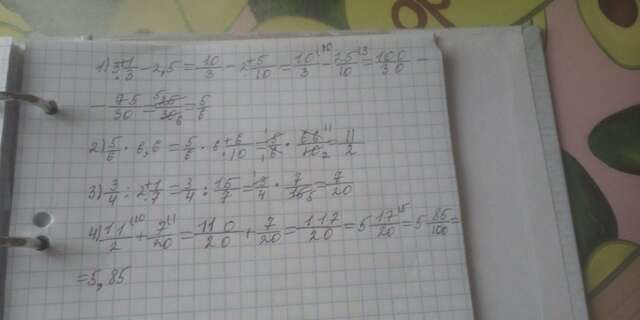 1) 3 1/3 - 2,5 = 10/3 - 2 5/10 = 10/3 - 25/10 = 100/30 -
- 75/30 = 25/30 = 5/6
2) 5/6 · 6,6 = 5/6 · 6 6/10 = 5/6 · 66/10 = 11/2
3) 3/4 : 2 1/7 = 3/4 : 15/7 = 3/4 · 7/15 = 7/20
4) 11/2 + 7/20 = 110/20 + 7/20 = 117/20 = 5 17/20 = 5 85/100 =
= 5,85